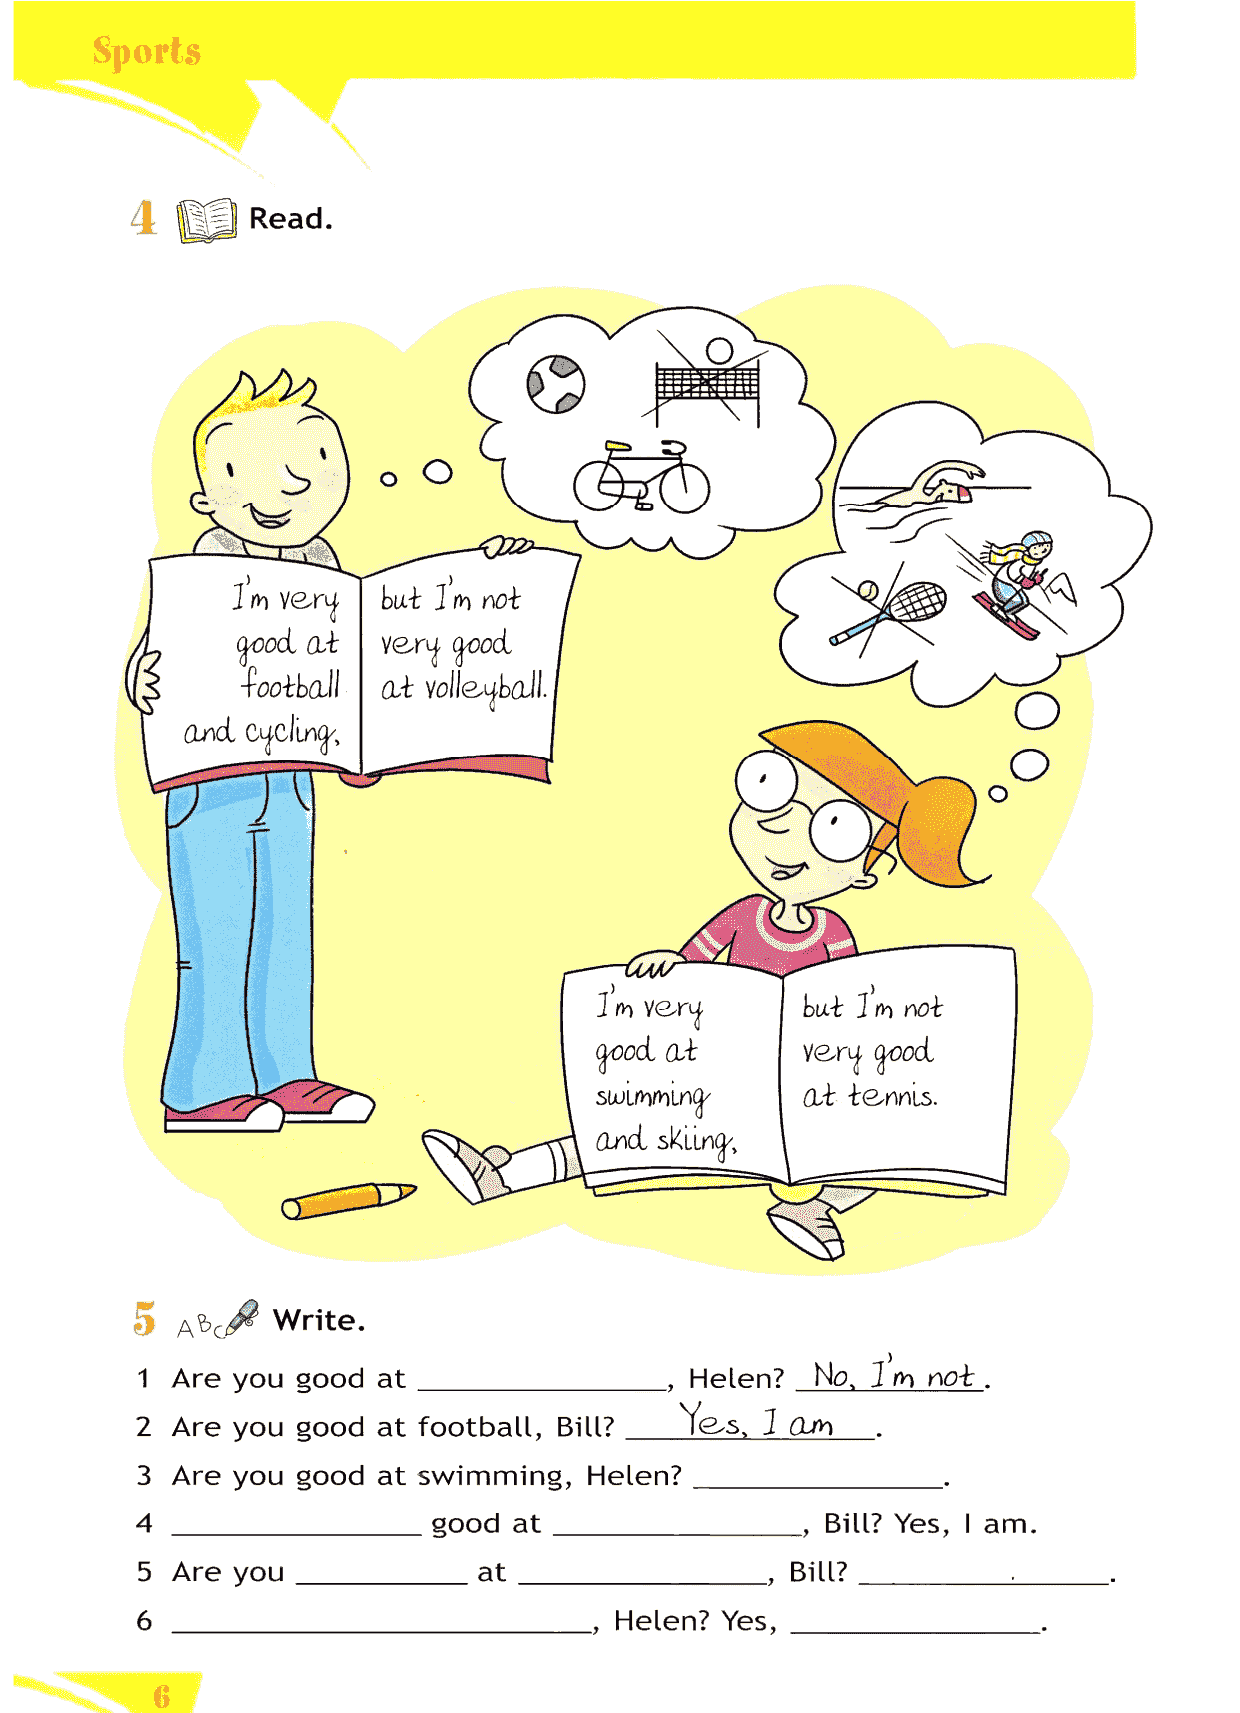 Sports
4 Read.
I'm very
good at
football
and cycling,
but I'm not
very good
at volleyball.
I'm very
good at
swimming
and skiing,
but I'm not
very good
at tennis.
5 ABC Write.
1 Are you good at ____________, Helen? No, I'm not.
2 Are you good at football, Bill? Yes, I am.
3 Are you good at swimming, Helen? ____________.
4 ____________ good at ____________, Bill? Yes, I am.
5 Are you ________ at ____________, Bill? ____________.
6 ____________________, Helen? Yes, ____________.
6